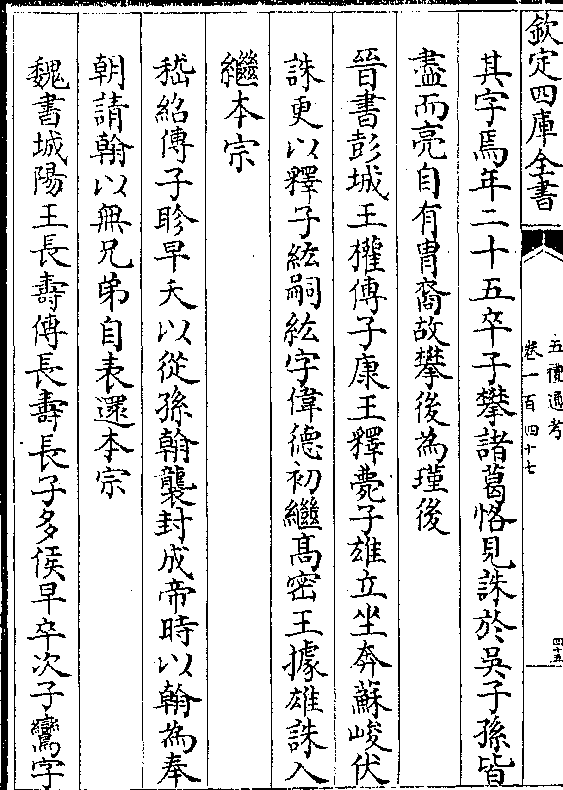 欽定四庫全書
五禮通考
卷一百四十七
四十五
其字焉年二十五卒子攀諸葛恪見誅於吳子孫皆
盡而亮自有胄裔故攀後為瑾後
晉書彭城王權傳子康王釋薨子雄立坐奔蘇峻伏
誅更以釋子紘嗣紘字偉德初繼髙密王據雄誅入
繼本宗
嵇紹傳子眕早夭以從孫翰襲封成帝時以翰為奉
朝請翰以無兄弟自表還本宗
魏書城陽王長壽傳長壽長子多侯早卒次子鸞字